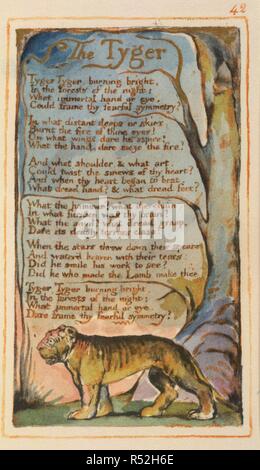 42
The Tyger
Tyger Tyger, burning bright,
In the forests of the night:
What immortal hand or eye,
Could frame thy fearful symmetry?
In what distant deeps or skies
Burnt the fire of thine eyes?
On what wings dare he aspire?
What the hand, dare sieze the fire?
And what shoulder, & what art,
Could twist the sinews of thy heart?
And when thy heart began to beat,
What dread hand? & what dread feet?
What the hammer? what the chain,
In what furnace was thy brain?
What the anvil? what dread grasp,
Dare its deadly terrors clasp?
When the stars threw down their spears
And water'd heaven with their tears:
Did he smile his work to see?
Did he who made the Lamb make thee?
Tyger Tyger burning bright,
In the forests of the night:
What immortal hand or eye,
Dare frame thy fearful symmetry?
alamy
Image ID: R52H6E
www.alamy.com